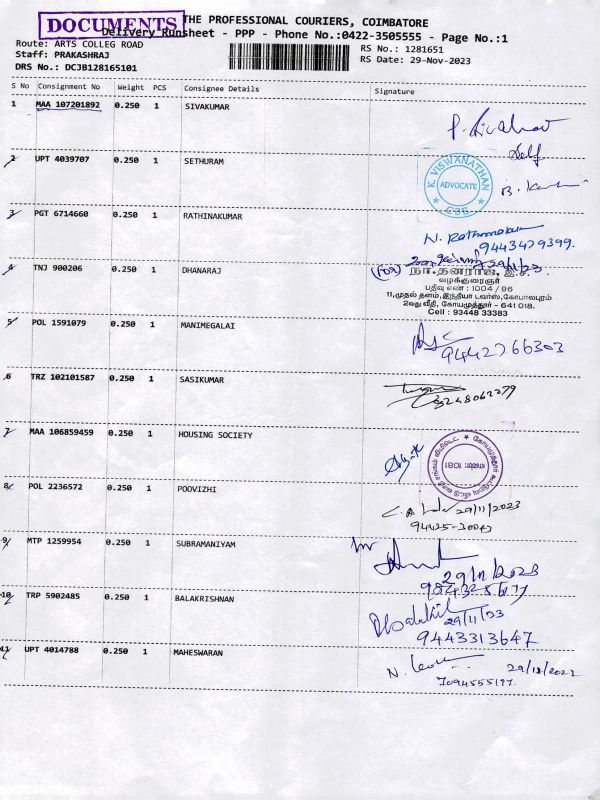 DOCUMENTS
THE PROFESSIONAL COURIERS, COIMBATORE
Delivery Runsheet - PPP - Phone No.:0422-3505555 - Page No.:1
Route: ARTS COLLEG ROAD
RS No.: 1281651
Staff: PRAKASHRAJ
RS Date: 29-Nov-2023
DRS No.: DCJB128165101
S No Consignment No Weight PCS Consignee Details Signature
1 MAA 107201892 0.250 1 SIVAKUMAR
Self
2 UPT 4039707 0.250 1 SETHURAM
K. VISWANATHAN
ADVOCATE
CBE
3 PGT 6714660 0.250 1 RATHINAKUMAR
9443479399.
4 TNJ 900206 0.250 1 DHANARAJ
29/11/23
நா.தனராஜ், இ.ச.
வழக்குரைஞர்
பதிவு எண் : 1004 / 96
11,முதல் தளம்,இந்தியா டவர்ஸ்,கோபாலபுரம்
2வது வீதி, கோயமுத்தூர் - 641 018.
Cell : 93448 33383
5 POL 1591079 0.250 1 MANIMEGALAI
9442766303
6 TRZ 102101587 0.250 1 SASIKUMAR
7 MAA 106859459 0.250 1 HOUSING SOCIETY
8 POL 2236572 0.250 1 POOVIZHI
29/11/2023
9 MTP 1259954 0.250 1 SUBRAMANIYAM
29/11/2023
10 TRP 5902485 0.250 1 BALAKRISHNAN
29/11/23
9443313647
11 UPT 4014788 0.250 1 MAHESWARAN